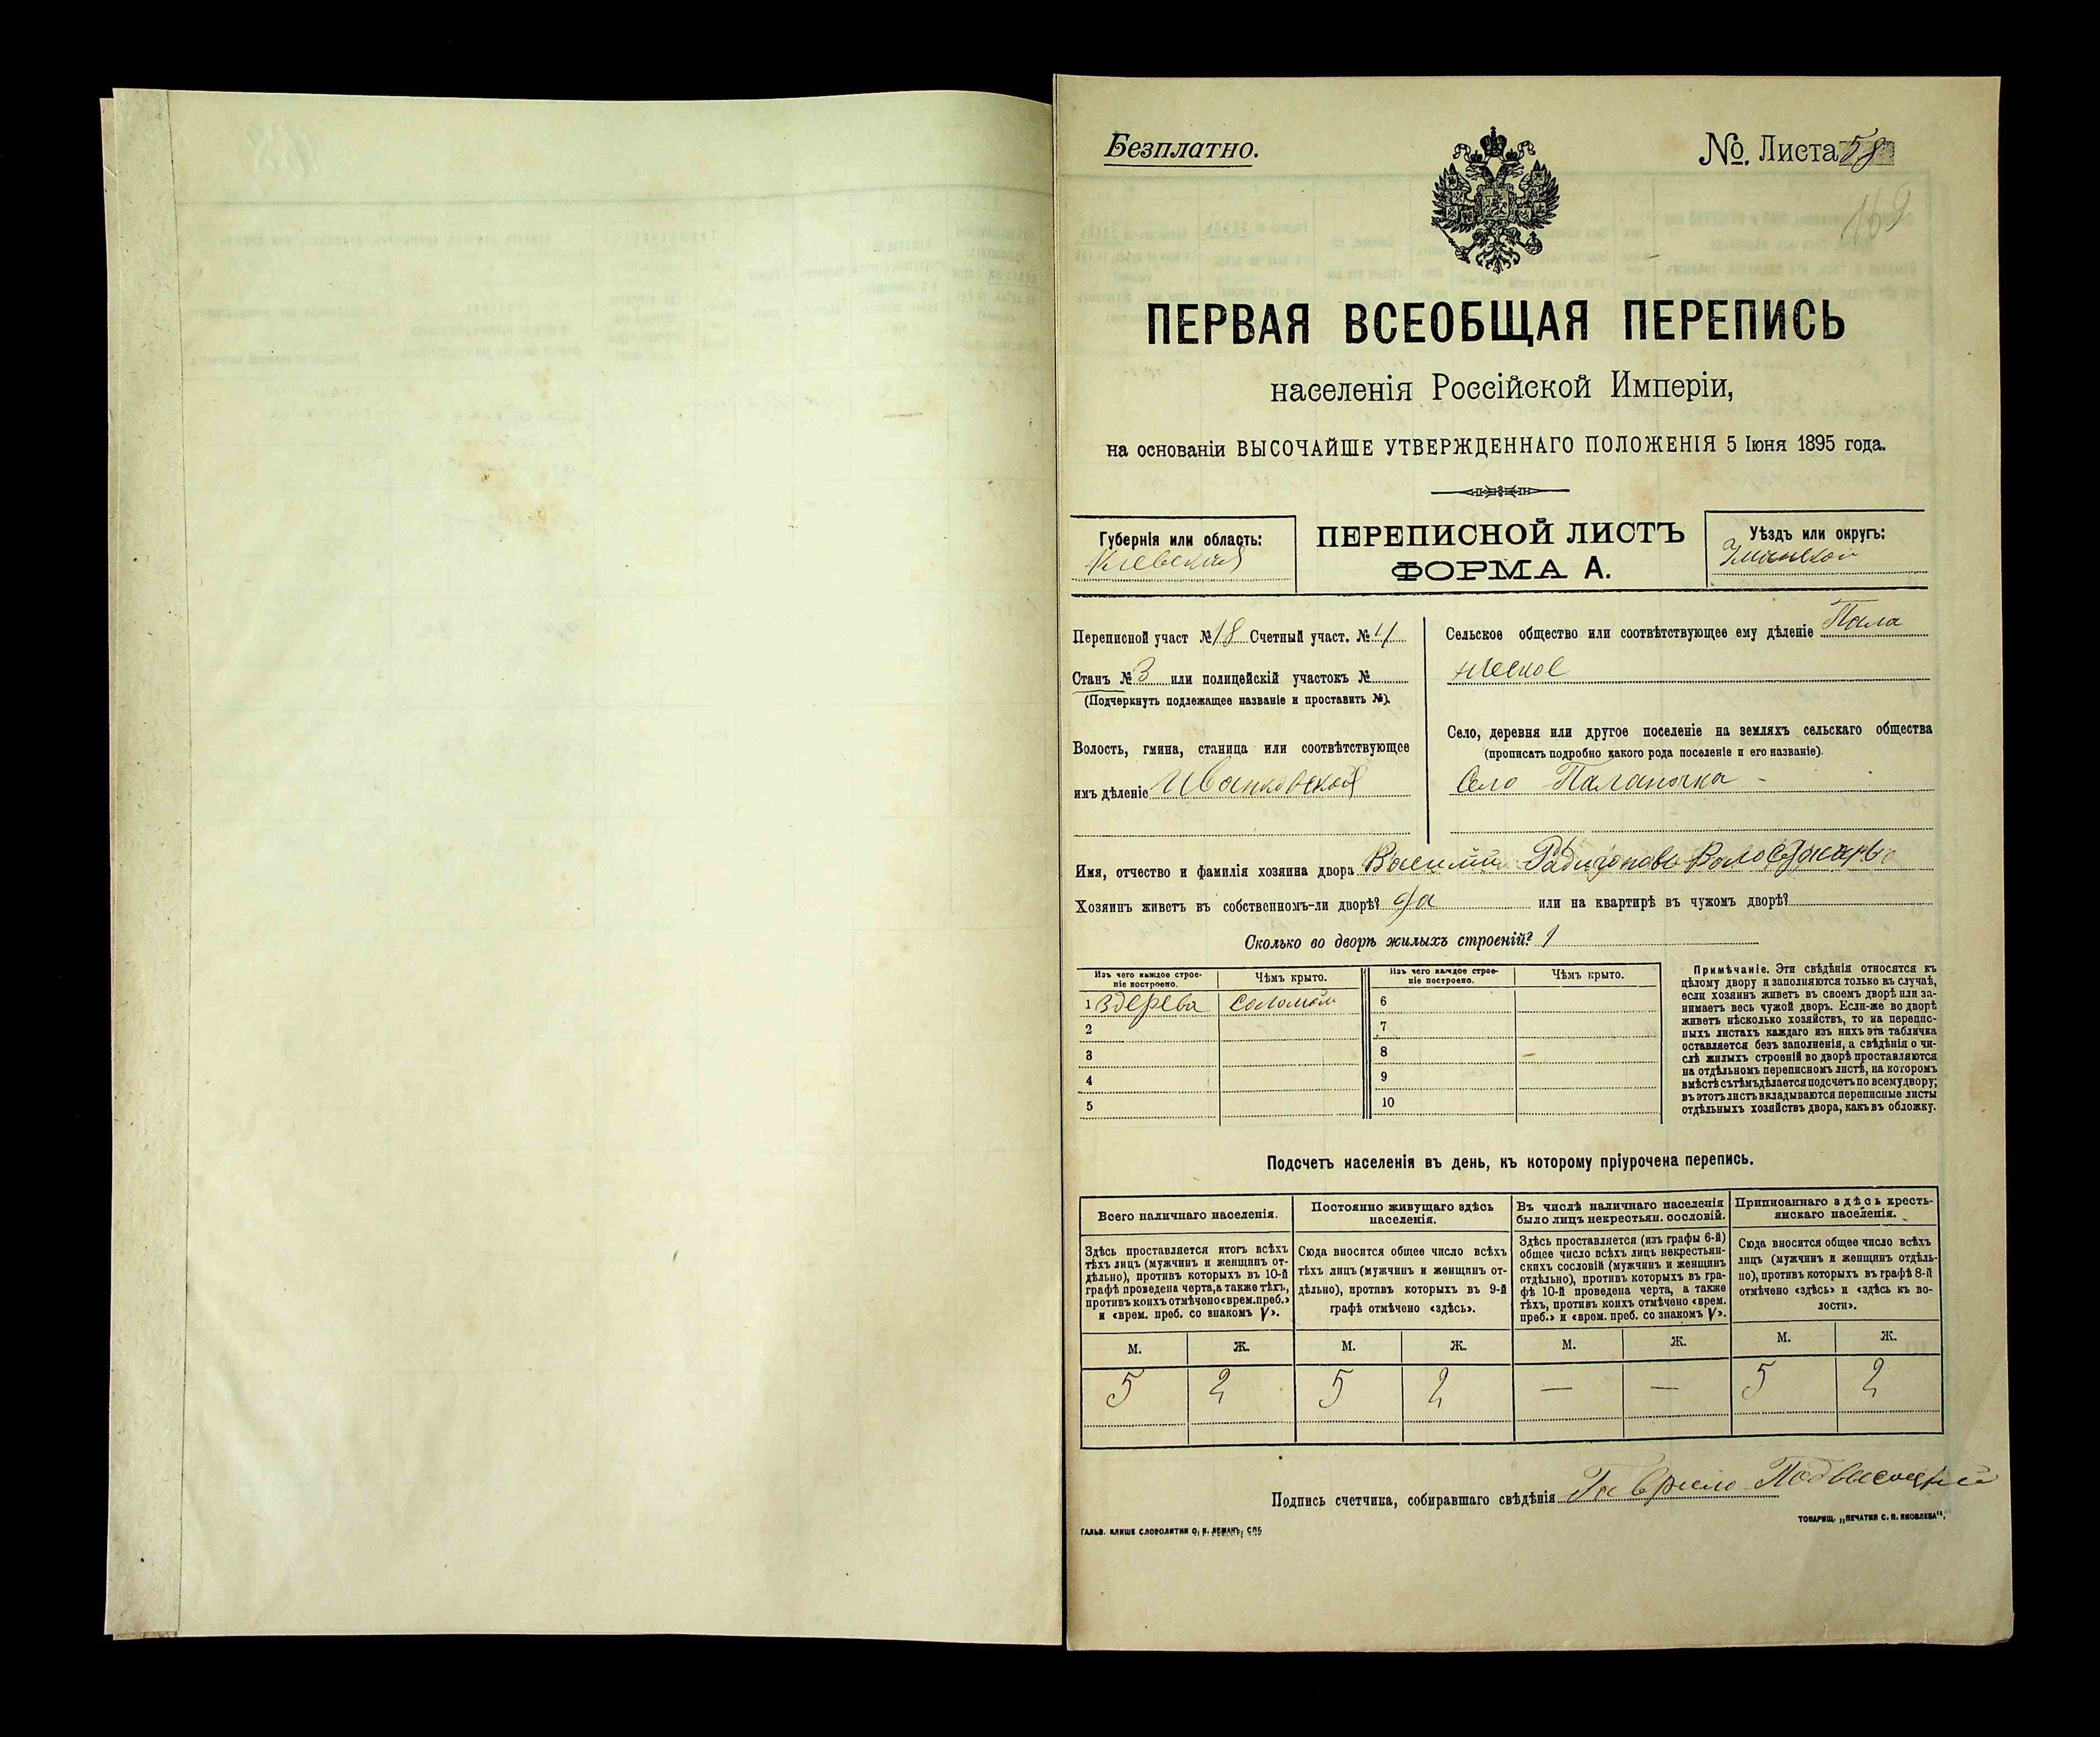 Безплатно.
№. Листа 58
169
ПЕРВАЯ ВСЕОБЩАЯ ПЕРЕПИСЬ
населенія Россійской Имперіи,
на основаніи ВЫСОЧАЙШЕ УТВЕРЖДЕННАГО ПОЛОЖЕНІЯ 5 Іюня 1895 года.
Губернія или область:
Кіевская
ПЕРЕПИСНОЙ ЛИСТЪ
ФОРМА А.
Уѣздъ или округъ:
Переписной участ № 18 Счетный участ. № 4
Станъ № 3 или полицейскій участокъ №
(Подчеркнуть подлежащее названіе и проставить №).
Волость, гмина, станица или соотвѣтствующее
имъ дѣленіе Иваньковской
Сельское общество или соотвѣтствующее ему дѣленіе Пала
нское
Село, деревня или другое поселеніе на земляхъ сельскаго общества
(прописать подробно какого рода поселеніе и его названіе).
Село Паланочка
Имя, отчество и фамилія хозяина двора Василий
Хозяинъ живетъ въ собственномъ-ли дворѣ? да или на квартирѣ въ чужомъ дворѣ?
Сколько во дворѣ жилыхъ строеній? 1
Изъ чего каждое строе-
ніе построено.
Чѣмъ крыто.
Изъ чего каждое строе-
ніе построено.
Чѣмъ крыто.
1 здерева соломою 6
2 7
3 8
4 9
5 10
Примѣчаніе. Эти свѣдѣнія относятся къ
цѣлому двору и заполняются только въ случаѣ,
если хозяинъ живетъ въ своемъ дворѣ или за-
нимаетъ весь чужой дворъ. Если-же во дворѣ
живетъ нѣсколько хозяйствъ, то на перепис-
ныхъ листахъ каждаго изъ нихъ эта табличка
оставляется безъ заполненія, а свѣдѣнія о чи-
слѣ жилыхъ строеній во дворѣ проставляются
на отдѣльномъ переписномъ листѣ, на которомъ
вмѣстѣ съ тѣмъ дѣлается подсчетъ по всему двору;
въ этотъ листъ вкладываются переписные листы
отдѣльныхъ хозяйствъ двора, какъ въ обложку.
Подсчетъ населенія въ день, къ которому пріурочена перепись.
Всего наличнаго населенія.
Здѣсь проставляется итогъ всѣхъ
тѣхъ лицъ (мужчинъ и женщинъ от-
дѣльно), противъ которыхъ въ 10-й
графѣ проведена черта, а также тѣхъ,
противъ коихъ отмѣчено «врем. преб.»
и «врем. преб. со знакомъ V».
Постоянно живущаго здѣсь
населенія.
Сюда вносится общее число всѣхъ
тѣхъ лицъ (мужчинъ и женщинъ от-
дѣльно), противъ которыхъ въ 9-й
графѣ отмѣчено «здѣсь».
Въ числѣ наличнаго населенія
было лицъ некрестьян. сословій.
Здѣсь проставляется (изъ графы 6-й)
общее число всѣхъ лицъ некрестьян-
скихъ сословій (мужчинъ и женщинъ
отдѣльно), противъ которыхъ въ гра-
фѣ 10-й проведена черта, а также
тѣхъ, противъ коихъ отмѣчено «врем.
преб.» и «врем. преб. со знакомъ V».
Приписаннаго здѣсь кресть-
янскаго населенія.
Сюда вносится общее число всѣхъ
лицъ (мужчинъ и женщинъ отдѣль-
но), противъ которыхъ въ графѣ 8-й
отмѣчено «здѣсь» и «здѣсь къ во-
лости».
М. Ж. М. Ж. М. Ж. М. Ж.
5 2 5 2 — — 5 2
Подпись счетчика, собиравшаго свѣдѣнія Гаврило Подвысоцкій
ГАЛЬВ. КЛИШЕ СЛОВОЛИТНИ О. И. ЛЕМАНЪ, СПБ.
ТОВАРИЩ. „ПЕЧАТНЯ С. П. ЯКОВЛЕВА“.